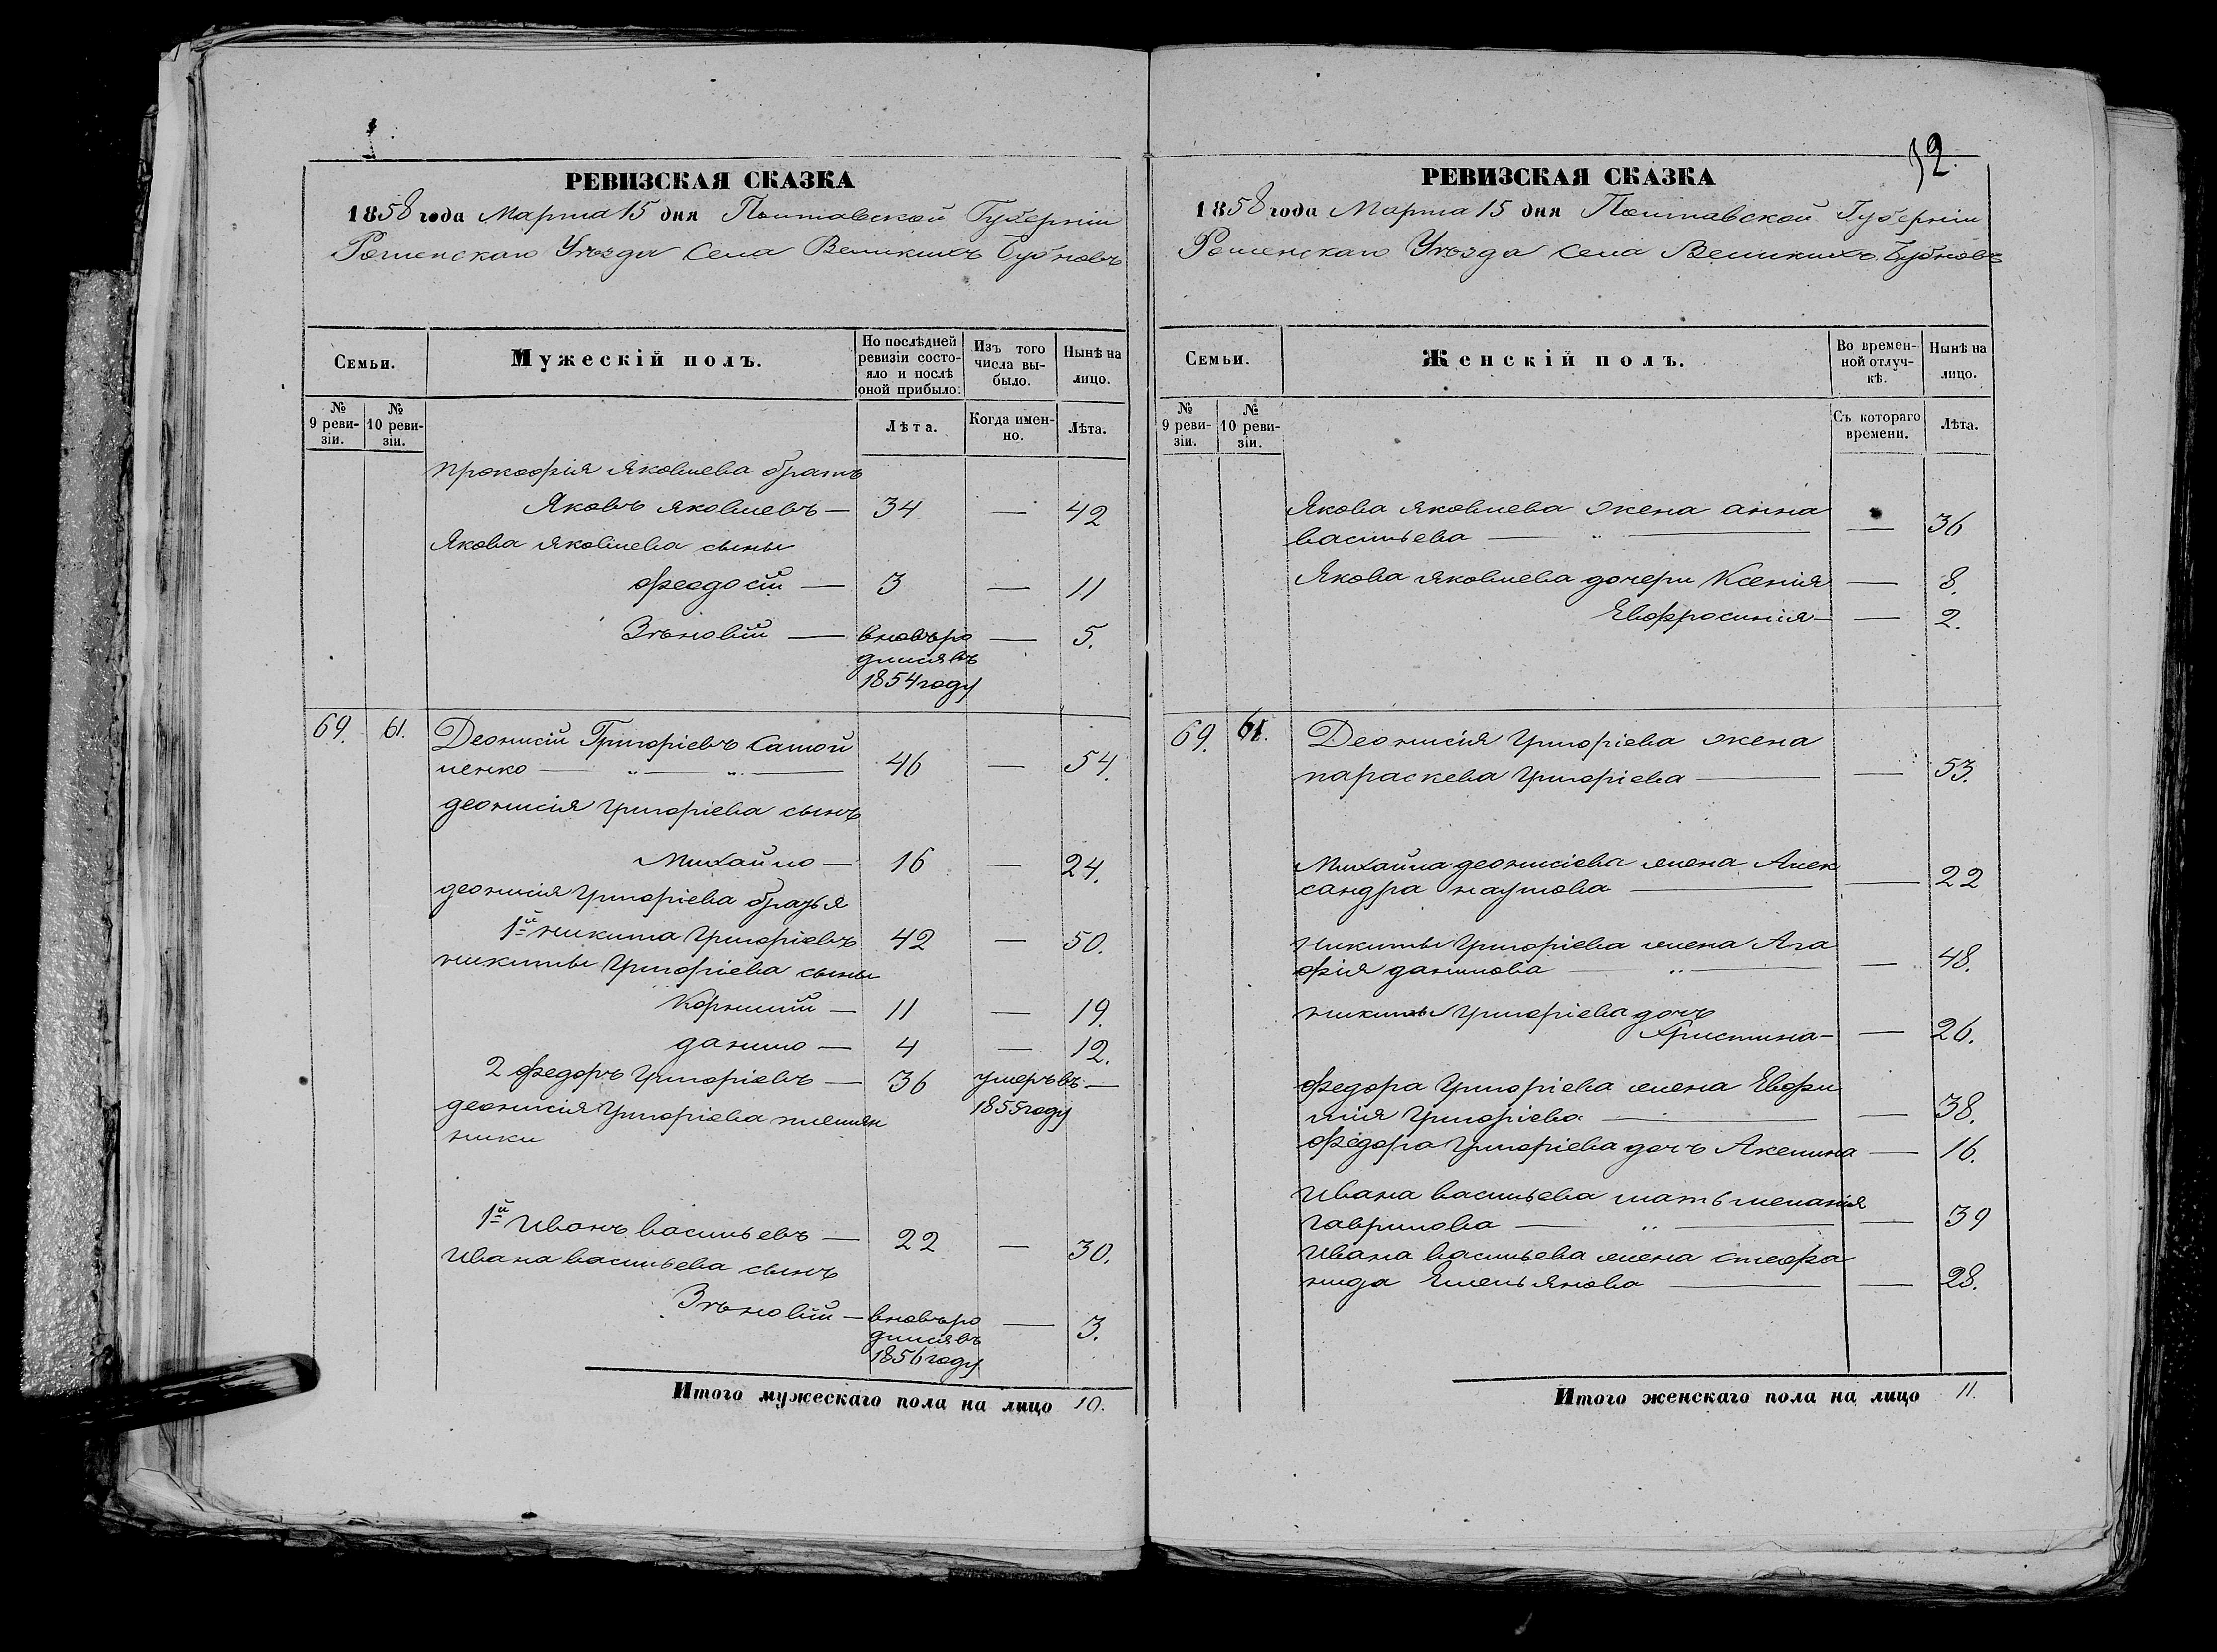 РЕВИЗСКАЯ СКАЗКА
1858 года Марта 15 дня Полтавской Губерніи
Роменскаго Уѣзда Села Великихъ Бубновъ
Семьи.
Мужескій полъ.
По послѣдней ревизіи состояло и послѣ оной прибыло.
Изъ того числа выбыло.
Нынѣ на лицо.
№ 9 ревизіи.
№ 10 ревизіи.
Лѣта.
Когда именно.
Лѣта.
Прокофія Яковлева братъ
Яковъ Яковлевъ — 34 — 42
Якова Яковлева сыны
Феодосій — 3 — 11
Зѣновій — вновьро — 5.
дился въ
1854 году
69. 61. Деонисій Григоріевъ Самой
ленко — „ — „ — 46 — 54.
деонисія Григоріева сынъ
Михайло — 16 — 24.
деонисія Григоріева братья
1й никита Григоріевъ 42 — 50.
никиты Григоріева сыны
Корнилій — 11 — 19.
данило — 4 — 12.
2 Федоръ Григоріевъ — 36 умеръ въ —
1855 году
деонисія Григоріева племян
ники
1й Иванъ васильевъ — 22 — 30.
Ивана васильева сынъ
Зѣновій — вновьро — 3.
дился въ
1856 году
Итого мужескаго пола на лицо 10.
92.
РЕВИЗСКАЯ СКАЗКА
1858 года Марта 15 дня Полтавской Губерніи
Роменскаго Уѣзда Села Великихъ Бубновъ
Семьи.
Женскій полъ.
Во временной отлучкѣ.
Нынѣ на лицо.
№ 9 ревизіи.
№ 10 ревизіи.
Съ котораго времени.
Лѣта.
Якова Яковлева жена анна
васильева — „ — — 36
Якова Яковлева дочери Ксенія — 8.
Евфросинія — — 2.
69. 61. Деонисія Григоріева жена
параскева Григоріева — — 53.
Михайла деонисіева жена Алек
сандра наумова — — 22
никиты Григоріева жена Ага
фія данилова — „ — — 48.
никиты Григоріева дочь
Христина — — 26.
Федора Григоріева жена Евфи
мія Григоріева — — 38.
Федора Григоріева дочь Акелина — 16.
Ивана васильева мать меланія
гаврилова — „ — — 39
Ивана васильева жена стефа
нида Емельянова — — 28.
Итого женскаго пола на лицо 11.